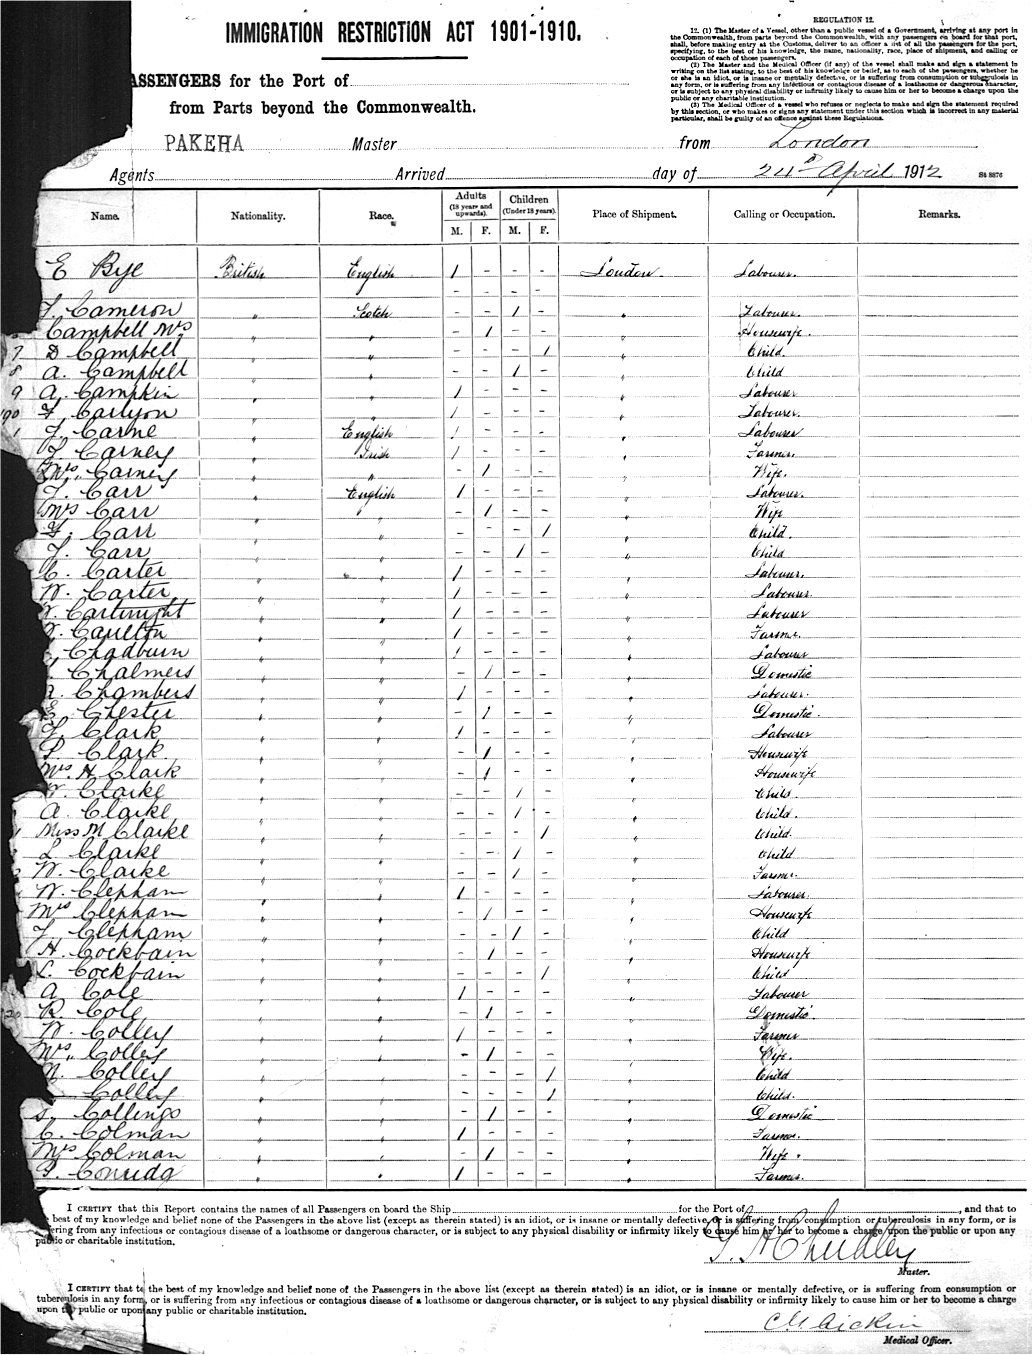 IMMIGRATION RESTRICTION ACT 1901-1910.
REGULATION 12.
12. (1) The Master of a Vessel, other than a public vessel of a Government, arriving at any port in
the Commonwealth, from parts beyond the Commonwealth, with any passengers on board for that port,
shall, before making entry at the Customs, deliver to an officer a list of all the passengers for the port,
specifying, to the best of his knowledge, the name, nationality, race, place of shipment, and calling or
occupation of each of those passengers.
(2) The Master and the Medical Officer (if any) of the vessel shall make and sign a statement in
writing on the list stating, to the best of his knowledge or belief, as to each of the passengers, whether he
or she is an idiot, or is insane or mentally defective, or is suffering from consumption or tuberculosis in
any form, or is suffering from any infectious or contagious disease of a loathsome or dangerous character,
or is subject to any physical disability or infirmity likely to cause him or her to become a charge upon the
public or any charitable institution.
(3) The Medical Officer of a vessel who refuses or neglects to make and sign the statement required
by this section, or who makes or signs any statement under this section which is incorrect in any material
particular, shall be guilty of an offence against these Regulations.
ASSENGERS for the Port of
from Parts beyond the Commonwealth.
PAKEHA Master from London
Agents Arrived day of 24th April 1912 S4 8876
Name. Nationality. Race. Adults (18 years and upwards). Children (Under 18 years). Place of Shipment. Calling or Occupation. Remarks.
M. F. M. F.
E Bye British English 1 - - - London Labourer.
- - - -
Cameron " Scotch - - 1 - " Labourer.
Campbell Mrs " " - 1 - - " Housewife.
7 D Campbell " " - - - 1 " Child.
8 A. Campbell " " - - 1 - " Child
9 A. Campkin " " 1 - - - " Labourer
90 F. Carlyon " " 1 - - - " Labourer.
1 Carne " English 1 - - - " Labourer
Carney " Irish 1 - - - " Farmer.
Mrs. Carney " " - 1 - - " Wife.
Carr " English 1 - - - " Labourer.
Mrs Carr " " - 1 - - " Wife
Carr " " - - - 1 " Child.
Carr " " - - 1 - " Child
C. Carter " " 1 - - - " Labourer.
W. Carter " " 1 - - - " Labourer.
Cartwright " " 1 - - - " Labourer
Caulton " " 1 - - - " Farmer.
Chadburn " " 1 - - - " Labourer
Chalmers " " - 1 - - " Domestic
Chambers " " 1 - - - " Labourer.
E. Chester " " - 1 - - " Domestic.
Clark " " 1 - - - " Labourer
Clark " " - 1 - - " Housewife
Mrs. H Clark " " - 1 - - " Housewife
W. Clarke " " - - 1 - " Child.
A. Clarke " " - - 1 - " Child.
Miss M Clarke " " - - - 1 " Child.
L Clarke " " - - 1 - " Child
W. Clarke " " - - 1 - " Farmer.
W. Clepham " " 1 - - - " Labourer.
Mrs Clepham " " - 1 - - " Housewife
Clepham " " - - 1 - " Child
H. Cockbain " " - 1 - - " Housewife
L. Cockbain " " - - - 1 " Child
A Cole " " 1 - - - " Labourer
20 R. Cole " " - 1 - - " Domestic.
W. Colley " " 1 - - - " Farmer
Mrs. Colley " " - 1 - - " Wife.
Colley " " - - - 1 " Child
Colley " " - - - 1 " Child.
S. Collings " " - 1 - - " Domestic
C. Colman " " 1 - - - " Farmer.
Mrs Colman " " - 1 - - " Wife.
" " 1 - - - " Farmer.
I CERTIFY that this Report contains the names of all Passengers on board the Ship for the Port of , and that to
best of my knowledge and belief none of the Passengers in the above list (except as therein stated) is an idiot, or is insane or mentally defective, or is suffering from consumption or tuberculosis in any form, or is
ering from any infectious or contagious disease of a loathsome or dangerous character, or is subject to any physical disability or infirmity likely to cause him or her to become a charge upon the public or upon any
public or charitable institution.
Chudley
Master.
I CERTIFY that to the best of my knowledge and belief none of the Passengers in the above list (except as therein stated) is an idiot, or is insane or mentally defective, or is suffering from consumption or
tuberculosis in any form, or is suffering from any infectious or contagious disease of a loathsome or dangerous character, or is subject to any physical disability or infirmity likely to cause him or her to become a charge
upon the public or upon any public or charitable institution.
Aickin
Medical Officer.